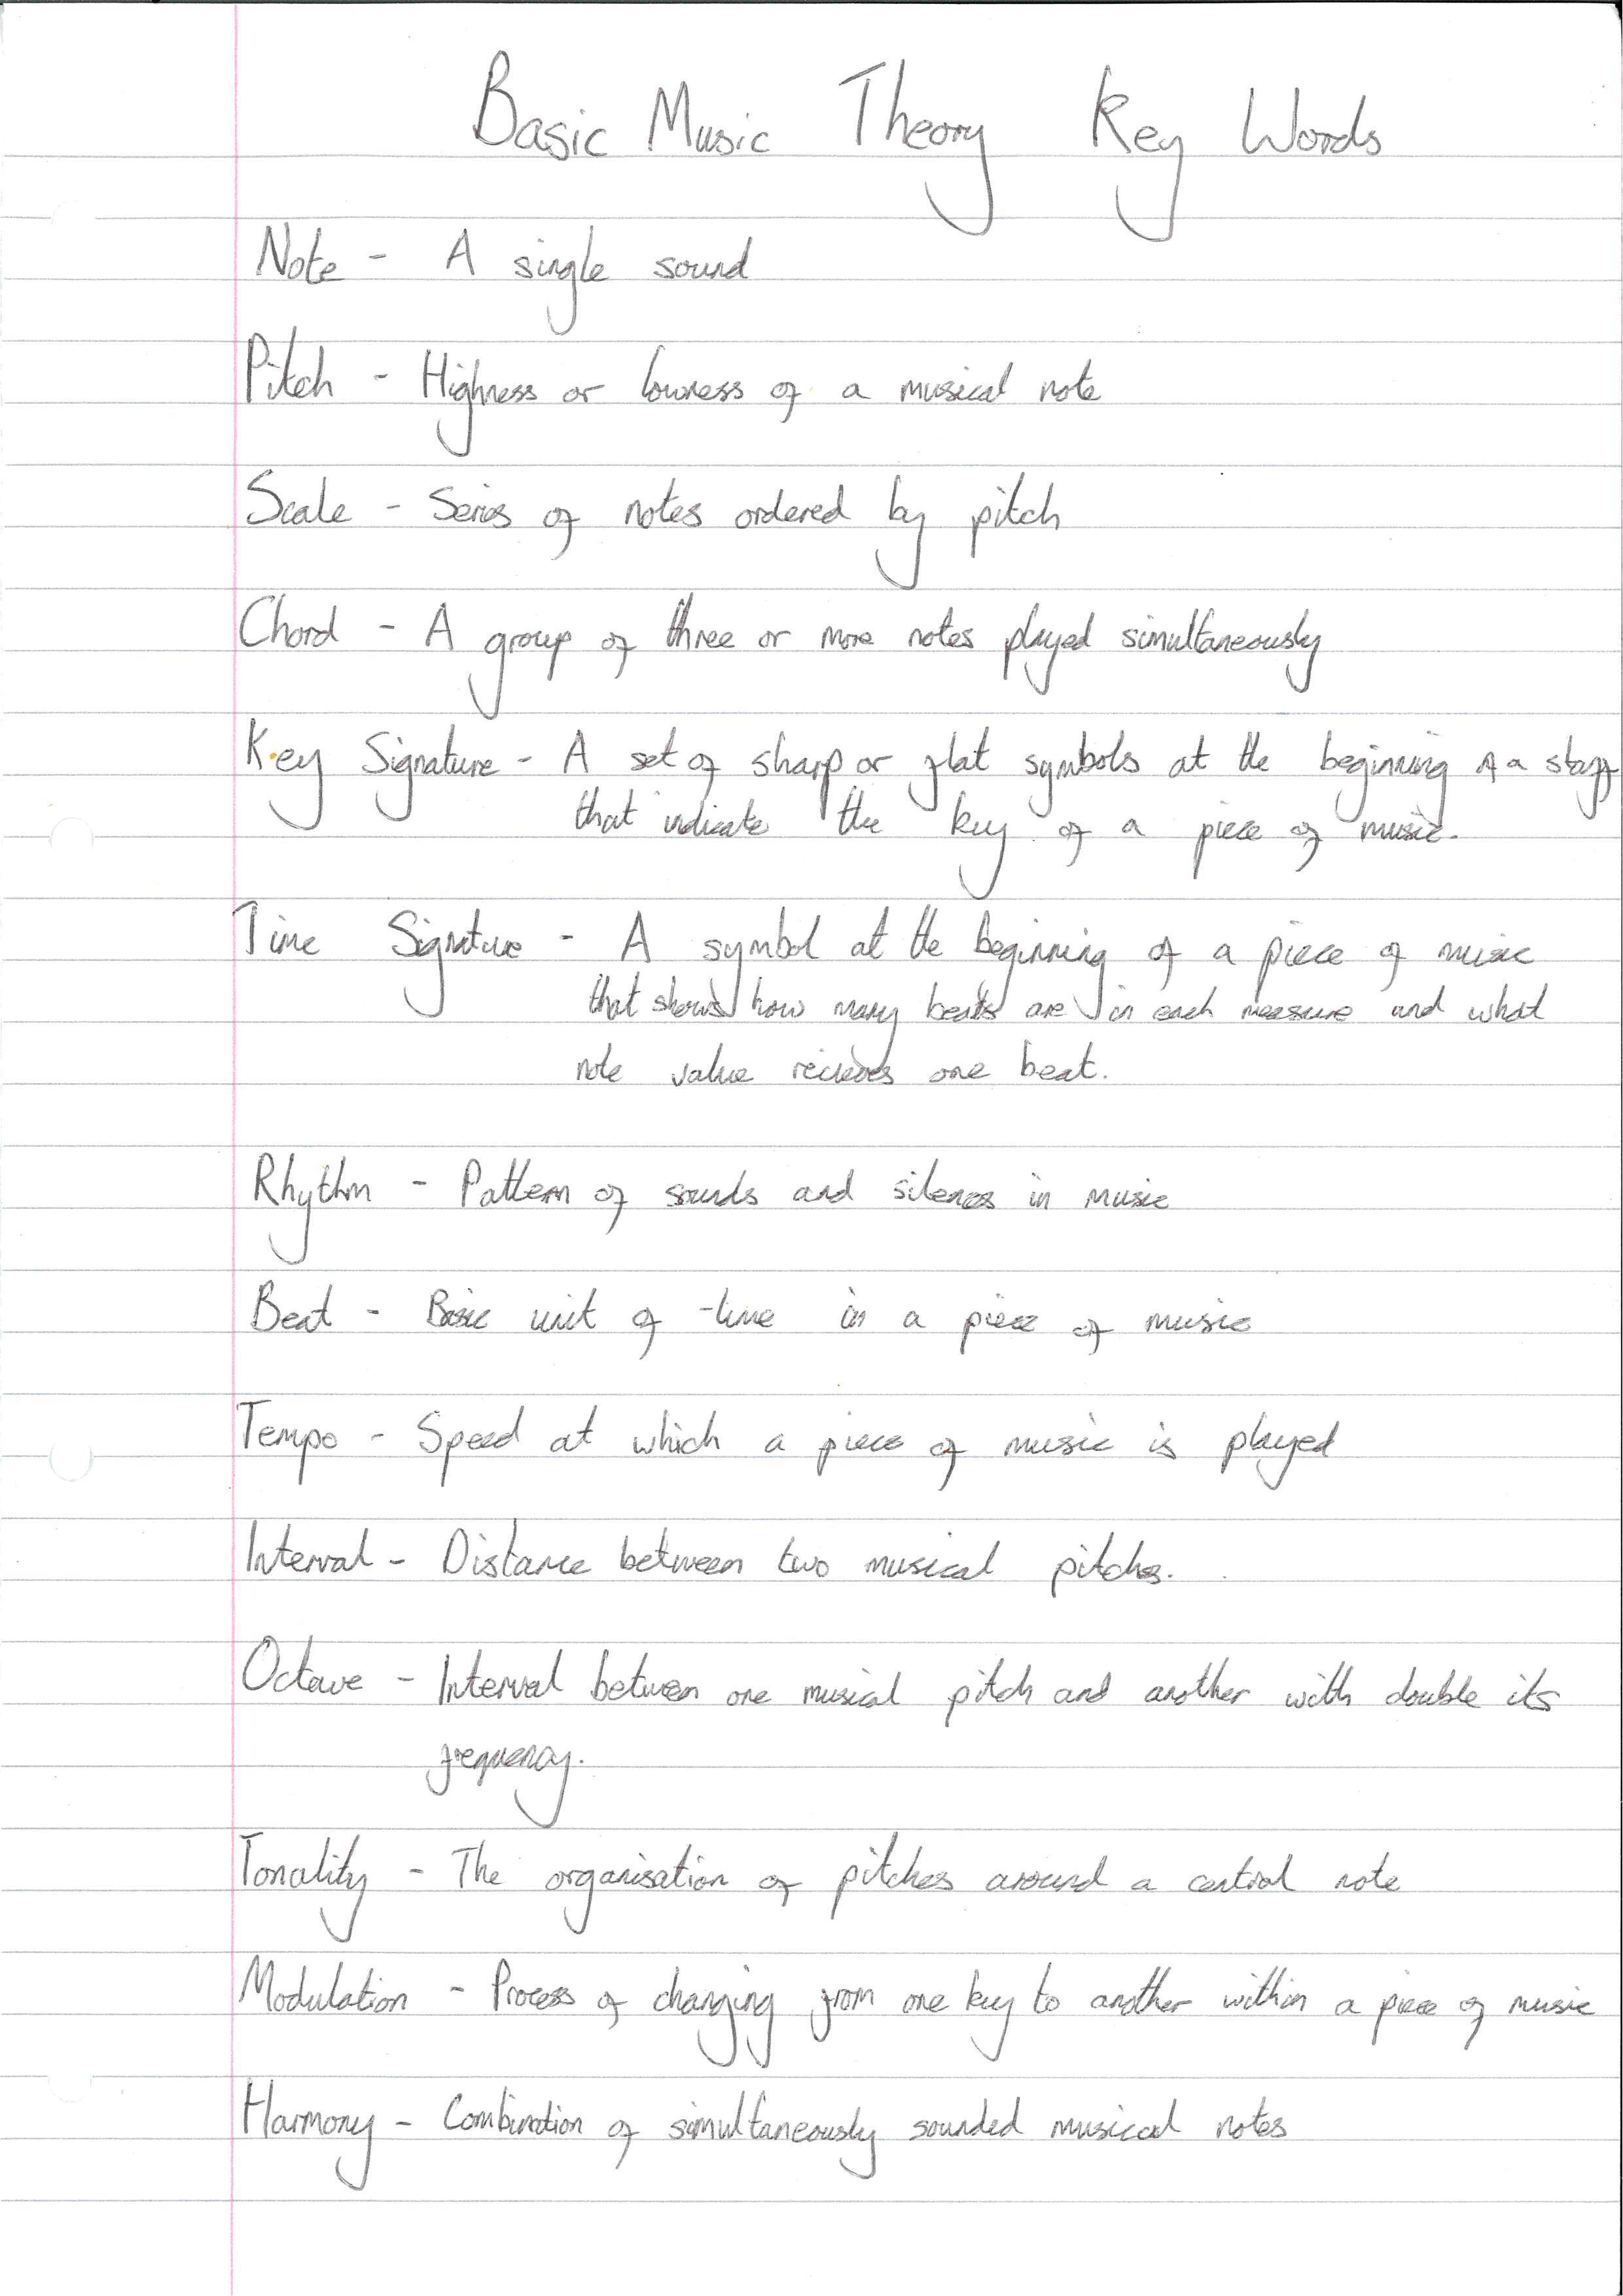 Basic Music Theory Key Words
Note - A single sound
Pitch - Highness or lowness of a musical note
Scale - Series of notes ordered by pitch
Chord - A group of three or more notes played simultaneously
Key Signature - A set of sharp or flat symbols at the beginning of a staff
that indicate the key of a piece of music.
Time Signature - A symbol at the beginning of a piece of music
that shows how many beats are in each measure and what
note value recieves one beat.
Rhythm - Pattern of sounds and silences in music
Beat - Basic unit of time in a piece of music
Tempo - Speed at which a piece of music is played
Interval - Distance between two musical pitches.
Octave - Interval between one musical pitch and another with double its
frequency.
Tonality - The organisation of pitches around a central note
Modulation - Process of changing from one key to another within a piece of music
Harmony - Combination of simultaneously sounded musical notes